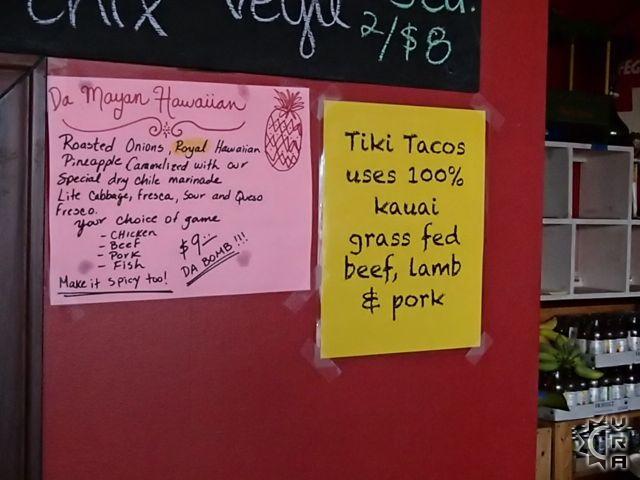 chix Vegu
2/$8
Da Mayan Hawaiian
Roasted Onions, Royal Hawaiian
Pineapple Caramelized with our
Special dry chile marinade
Lite Cabbage, Fresca, Sour and Queso
Fresco.
your choice of game
- CHICKEN
- Beef
- Pork
- Fish
$9
DA BOMB!!!
Make it spicy too!
Tiki Tacos
uses 100%
kauai
grass fed
beef, lamb
& pork